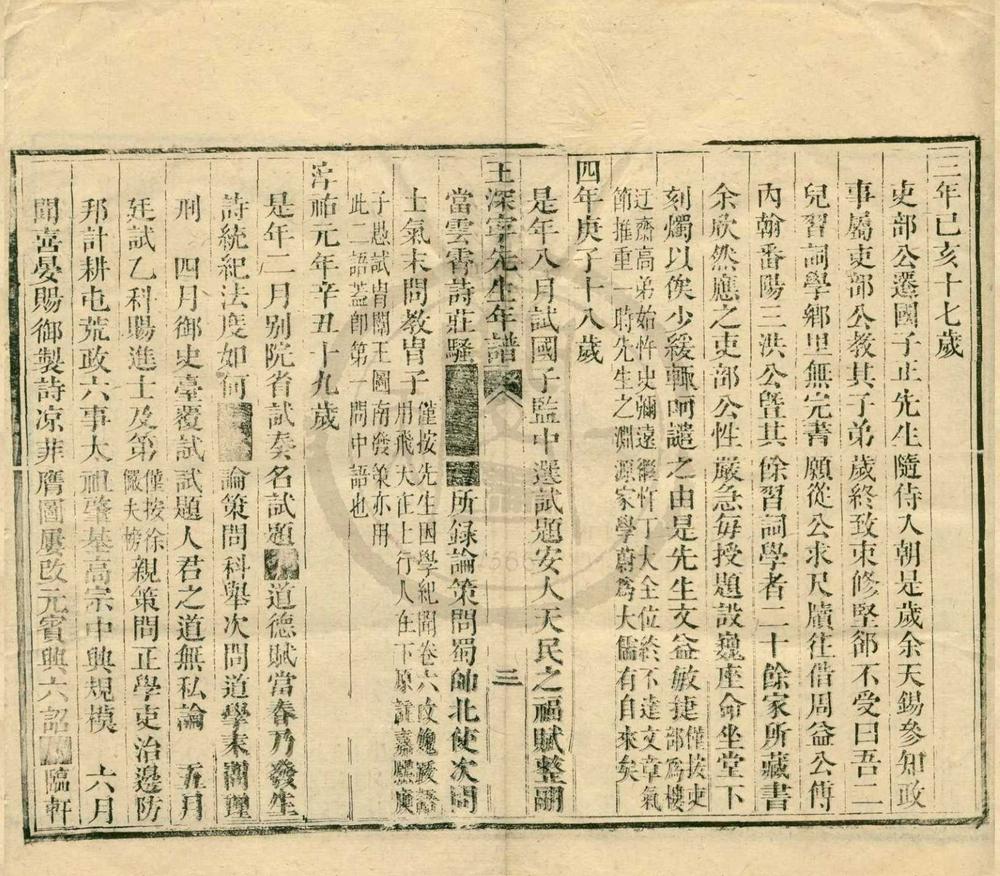 三年己亥十七歲
吏部公遷國子正先生隨侍入朝是歲余天錫參知政
事屬吏部公教其子弟歲終致束修堅郤不受曰吾二
兒習詞學鄉里無完書願從公求尺牘往借周益公傅
內翰番陽三洪公曁其餘習詞學者二十餘家所藏書
余欣然應之吏部公性嚴急每授題設巍座命坐堂下
刻燭以俟少緩輒呵譴之由是先生文益敏捷僅按吏部爲樓
迂齋高弟始忤史彌遠繼忤丁大全位終不達文章氣
節推重一時先生之淵源家學蔚爲大儒有自來矣
四年庚子十八歲
是年八月試國子監中選試題安人天民之福賦整嗣
王深寧先生年譜 三
當雲霄詩莊騷 所録論策問蜀帥北使次問
士氣末問教冑子僅按先生困學紀聞卷六攷媿簽語
用飛天在上行人在下原註嘉熙庚
子愚試冑闈王圖南發策亦用
此二語蓋卽第一問中語也
淳祐元年辛丑十九歲
是年二月别院省試奏名試題 道德賦當春乃發生
詩統紀法度如何 論策問科舉次問道學末問理
刑 四月御史臺覆試試題人君之道無私論 五月
廷試乙科賜進士及第僅按徐儼夫榜親策問正學吏治邊防
邦計耕屯荒政六事太祖肇基高宗中興規模 六月
聞喜晏賜御製詩凉菲膺圖屢改元賓興六詔 臨軒